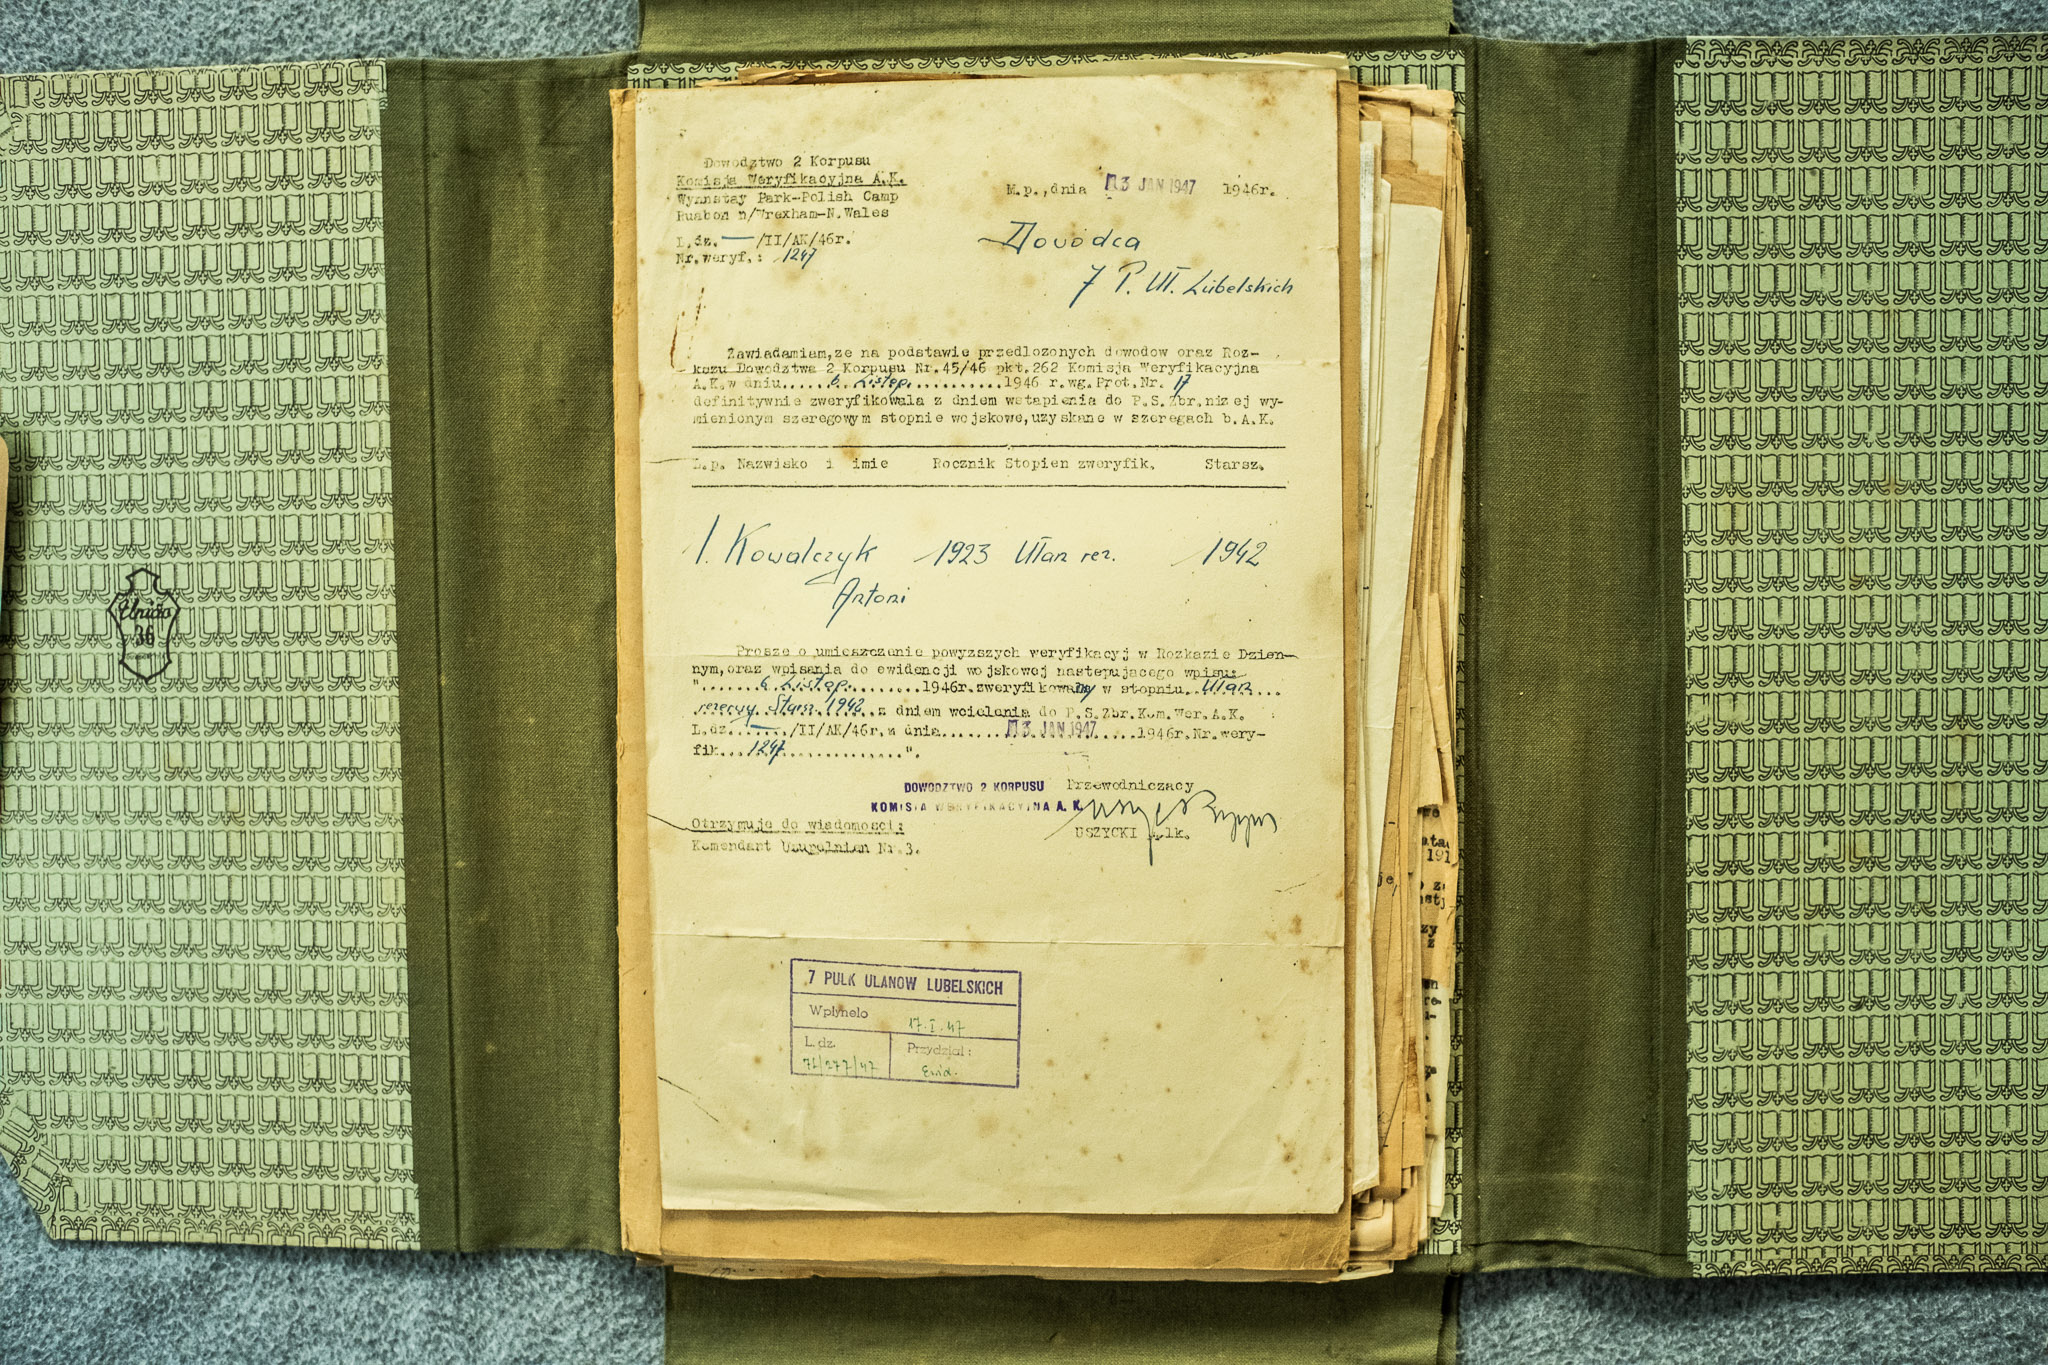 Dowodztwo 2 Korpusu
Komisja Weryfikacyjna A.K.
Wynnstay Park-Polish Camp
Ruabon n/Wrexham-N.Wales
L.dz. — /II/AK/46r.
Nr.weryf.: 1247
M.p.,dnia 13 JAN 1947 1946r.
Dowódca
7 P. Uł. Lubelskich
Zawiadamiam,ze na podstawie przedlozonych dowodow oraz Roz-
kazu Dowodztwa 2 Korpusu Nr.45/46 pkt.262 Komisja Weryfikacyjna
A.K.w dniu.....6 Listop...........1946 r.wg.Prot.Nr. 17
definitywnie zweryfikowala z dniem wstapienia do P.S.Zbr.nizej wy-
mienionym szeregowym stopnie wojskowe,uzyskane w szeregach b.A.K.
L.p. Nazwisko i imie Rocznik Stopien zweryfik. Starsz.
1. Kowalczyk 1923 Ułan rez. 1942
Antoni
Prosze o umieszczenie powyzszych weryfikacyj w Rozkazie Dzien-
nym,oraz wpisania do ewidencji wojskowej nastepujacego wpisu:
".......6 Listop........1946r.zweryfikowany w stopniu..Ułan...
rezerwy Starsz. 1942..z dniem wcielenia do P.S.Zbr.Kom.Wer.A.K.
L.dz...—.../II/AK/46r.z dnia.......13 JAN 1947.....1946r.Nr.wery-
fik...1247...............".
DOWODZTWO 2 KORPUSU
KOMISJA WERYFIKACYJNA A. K.
Przewodniczacy
USZYCKI plk.
Otrzymuje do wiadomosci:
Komendant Uzupelnien Nr.3.
7 PULK ULANOW LUBELSKICH
Wplynelo 17.I.47
L. dz. Przydzial:
71/277/47 Ewid.
Unido
36